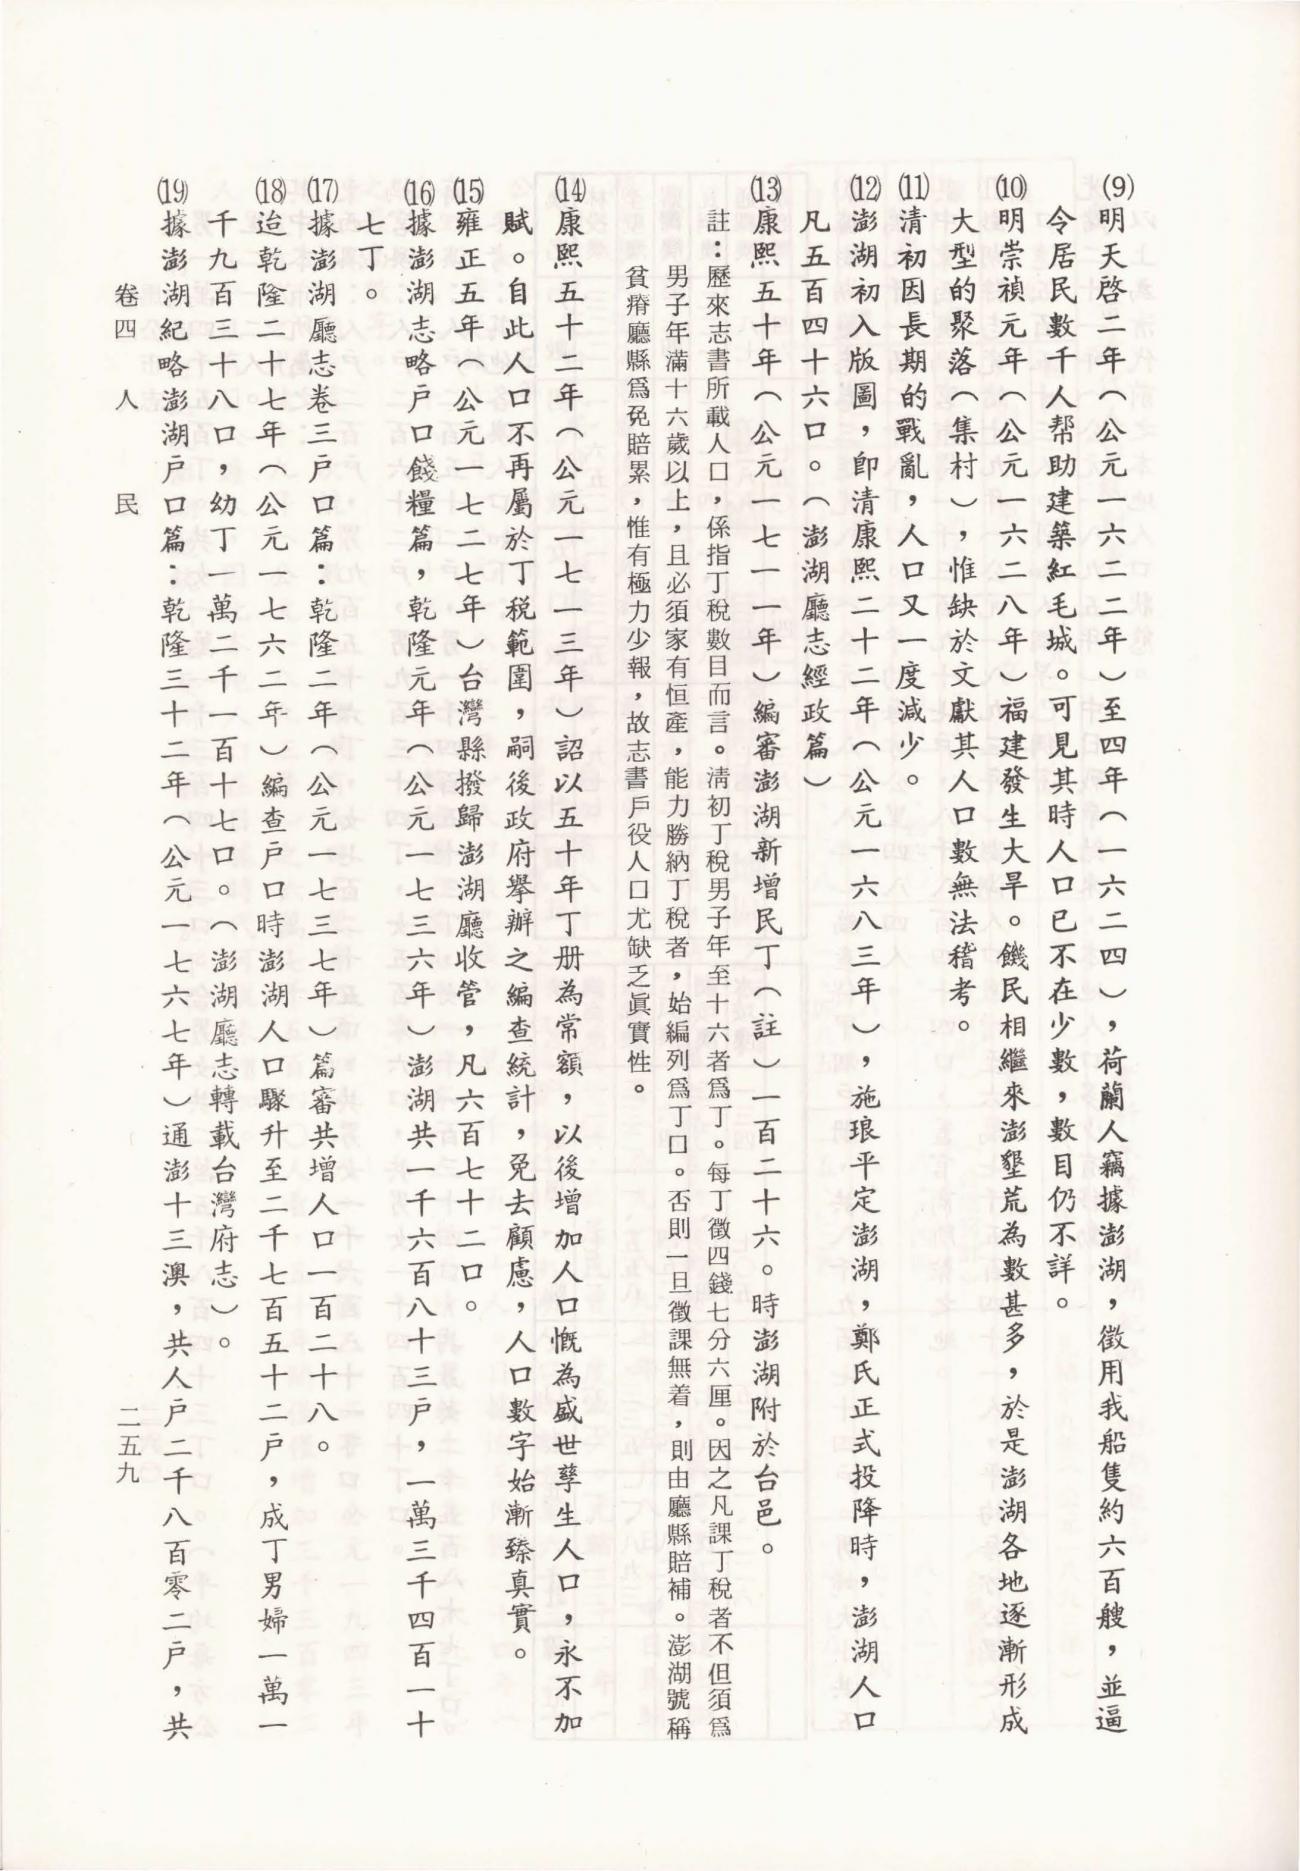 ⑼明天啓二年（公元一六二二年）至四年（一六二四），荷蘭人竊據澎湖，徵用我船隻約六百艘，並逼
令居民數千人帮助建築紅毛城。可見其時人口已不在少數，數目仍不詳。
⑽明崇禎元年（公元一六二八年）福建發生大旱。饑民相繼來澎墾荒為數甚多，於是澎湖各地逐漸形成
大型的聚落（集村），惟缺於文獻其人口數無法稽考。
⑾清初因長期的戰亂，人口又一度減少。
⑿澎湖初入版圖，卽清康熙二十二年（公元一六八三年），施琅平定澎湖，鄭氏正式投降時，澎湖人口
凡五百四十六口。（澎湖廳志經政篇）
⒀康熙五十年（公元一七一一年）編審澎湖新增民丁（註）一百二十六。時澎湖附於台邑。
註：歷來志書所載人口，係指丁稅數目而言。淸初丁稅男子年至十六者爲丁。每丁徵四錢七分六厘。因之凡課丁稅者不但須爲
男子年滿十六歲以上，且必須家有恒產，能力勝納丁稅者，始編列爲丁口。否則一旦徵課無着，則由廳縣賠補。澎湖號稱
貧瘠廳縣爲免賠累，惟有極力少報，故志書戶役人口尤缺乏眞實性。
⒁康熙五十二年（公元一七一三年）詔以五十年丁册為常額，以後增加人口慨為盛世孳生人口，永不加
賦。自此人口不再屬於丁稅範圍，嗣後政府擧辦之編查統計，免去顧慮，人口數字始漸臻真實。
⒂雍正五年（公元一七二七年）台灣縣撥歸澎湖廳收管，凡六百七十二口。
⒃據澎湖志略户口餞糧篇，乾隆元年（公元一七三六年）澎湖共一千六百八十三户，一萬三千四百一十
七丁。
⒄據澎湖廳志卷三户口篇：乾隆二年（公元一七三七年）篇審共增人口一百二十八。
⒅迨乾隆二十七年（公元一七六二年）編查户口時澎湖人口驟升至二千七百五十二户，成丁男婦一萬一
千九百三十八口，幼丁一萬二千一百十七口。（澎湖廳志轉載台灣府志）。
⒆據澎湖紀略澎湖户口篇：乾隆三十二年（公元一七六七年）通澎十三澳，共人户二千八百零二户，共
卷四　人　民
二五九